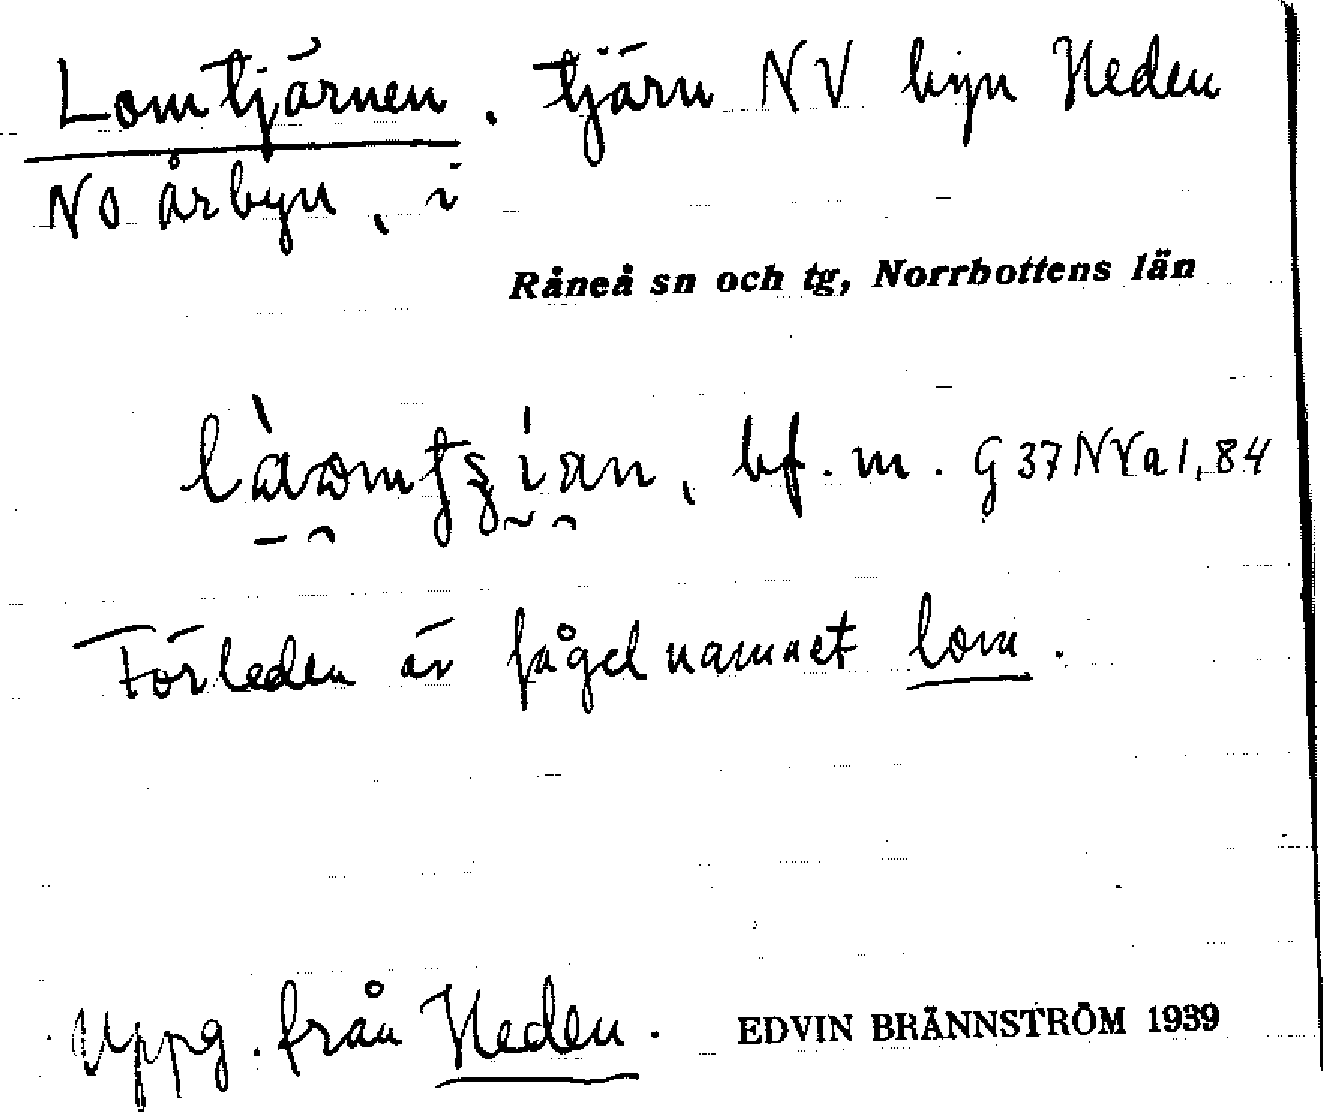 Lomtjärnen. tjärn NV byn Heden
NO årbyn, i
Råneå sn och tg, Norrbottens län
bf. m. G 37 NVa 1, 84
Förleden är fågelnamnet lom.
Uppg. från Heden. EDVIN BRÄNNSTRÖM 1939